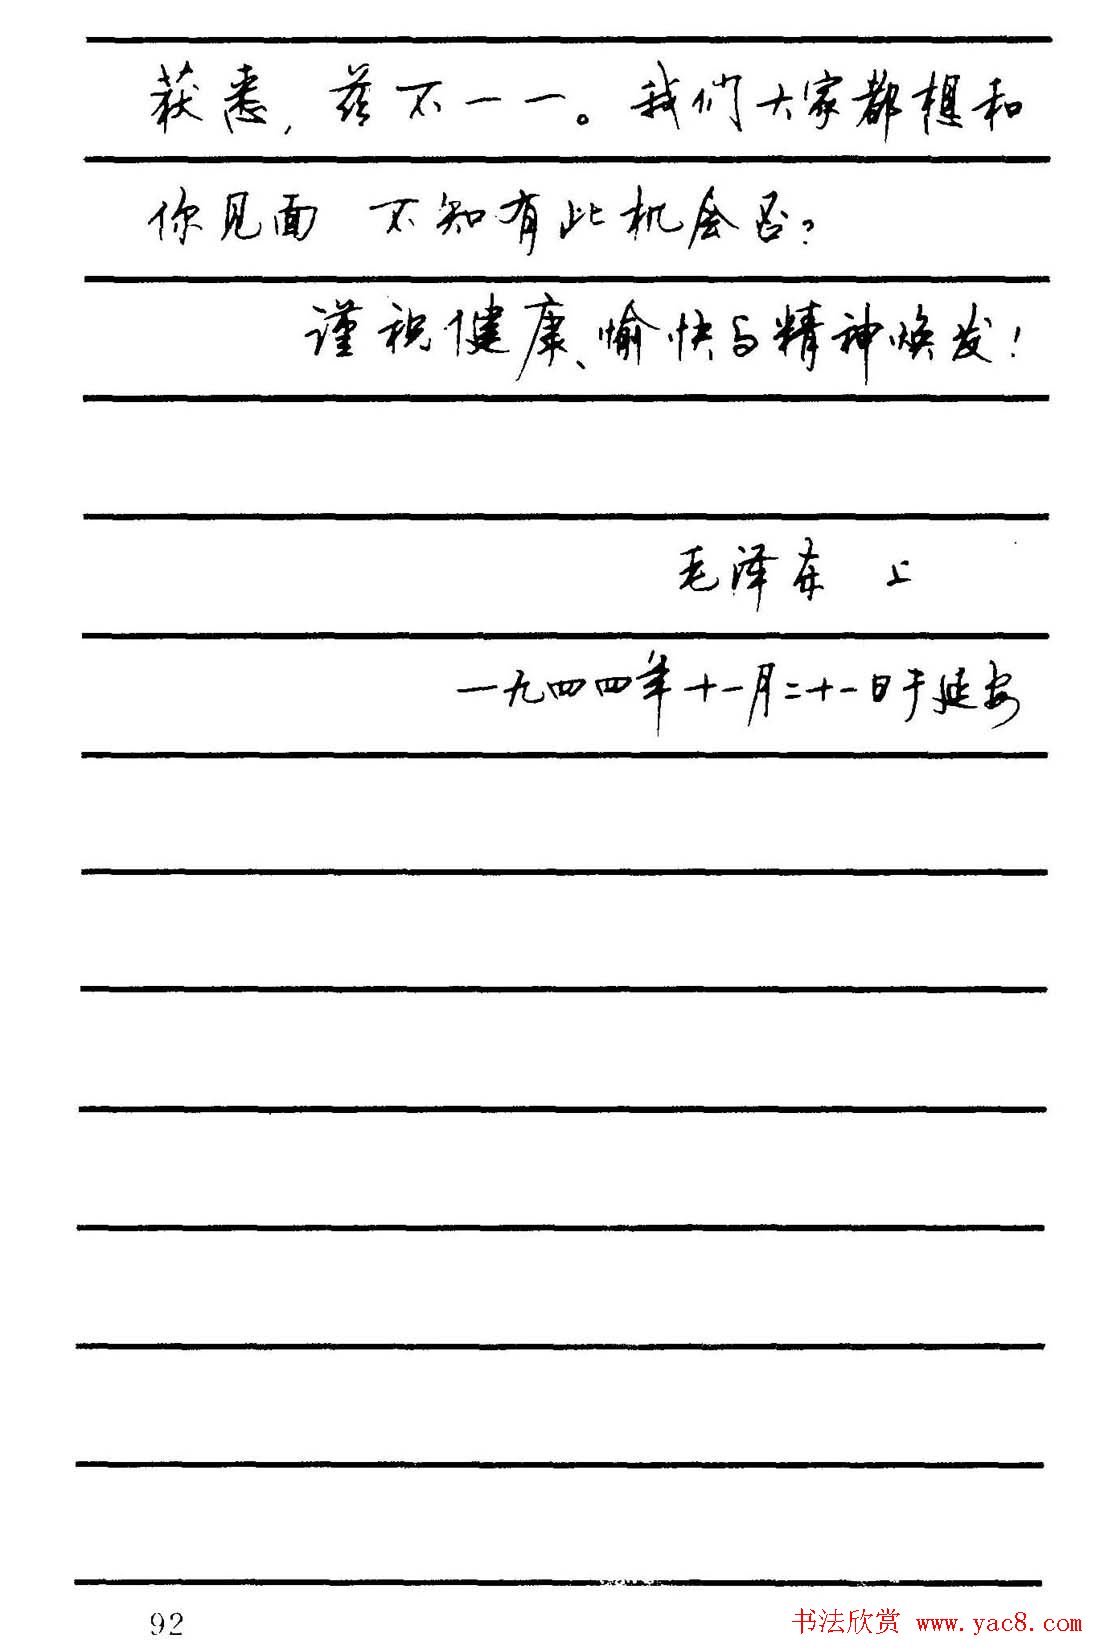 获悉，兹不一一。我们大家都想和
你见面 不知有此机会否？
谨祝健康、愉快与精神焕发！
毛泽东 上
一九四四年十一月二十一日于延安
92
书法欣赏 www.yac8.com